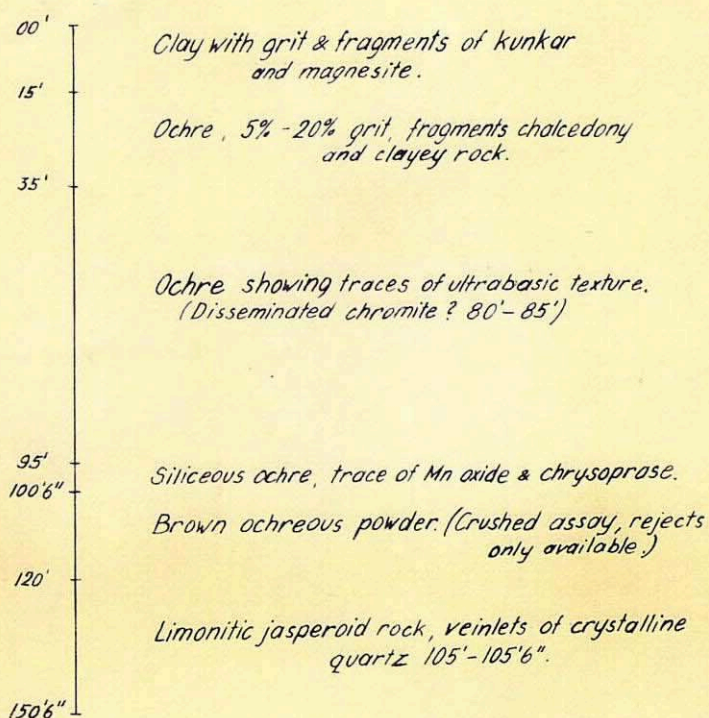 00'
Clay with grit & fragments of kunkar
and magnesite.
15'
Ochre, 5% - 20% grit, fragments chalcedony
and clayey rock.
35'
Ochre showing traces of ultrabasic texture.
(Disseminated chromite ? 80' - 85')
95'
Siliceous ochre, trace of Mn oxide & chrysoprase.
100'6"
Brown ochreous powder. (Crushed assay, rejects
only available.)
120'
Limonitic jasperoid rock, veinlets of crystalline
quartz 105' - 105'6".
150'6"